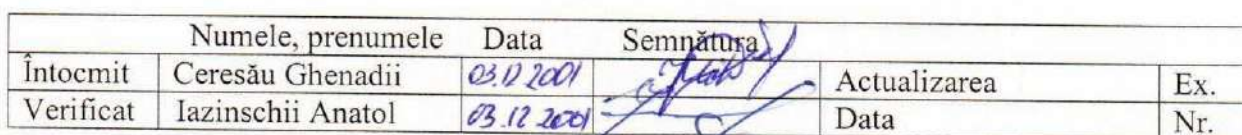 Numele, prenumele Data Semnătura
Întocmit Ceresău Ghenadii 03.12 2001 Actualizarea Ex.
Verificat Iazinschii Anatol 03.12 2001 Data Nr.